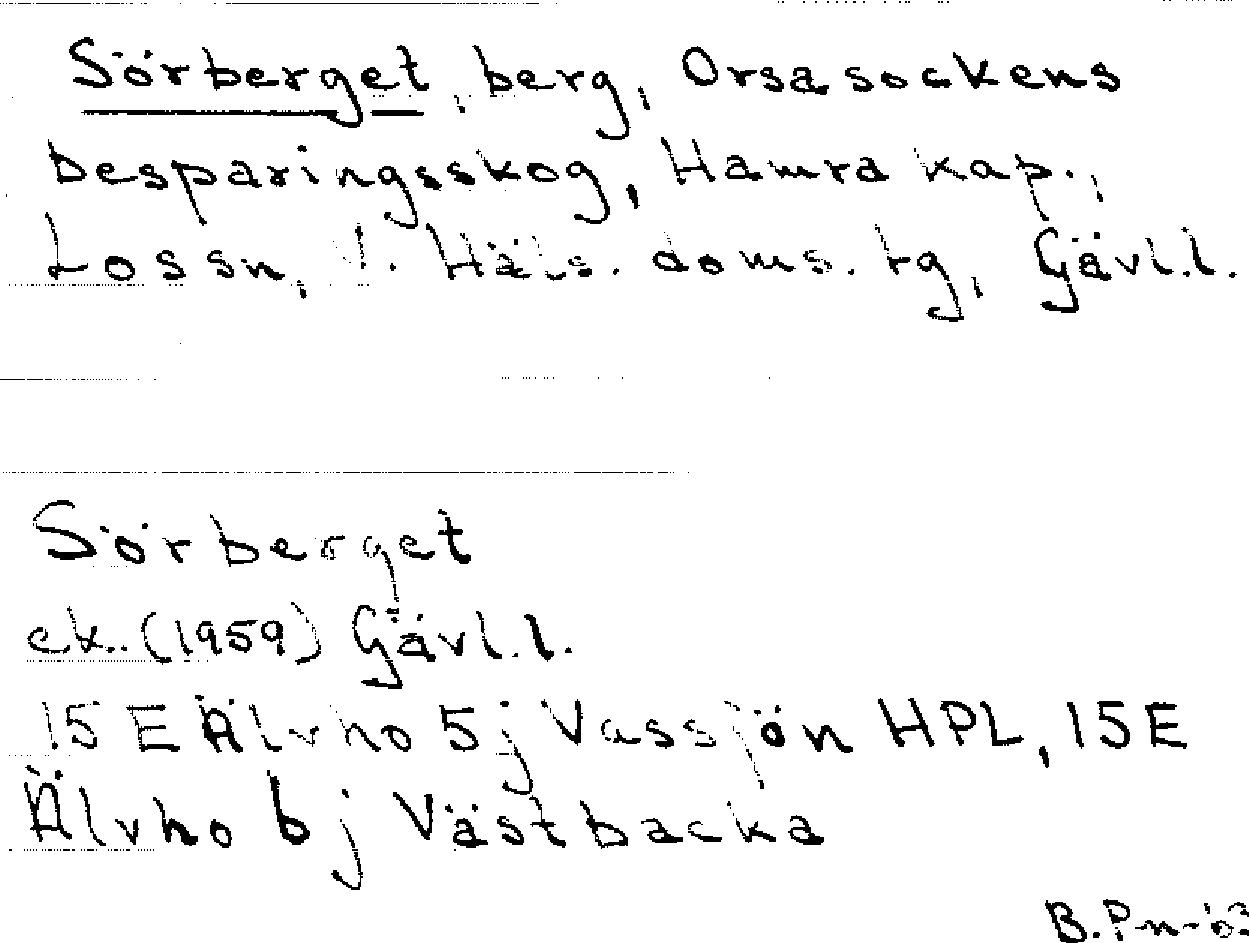 Sörberget, berg, Orsa sockens
besparingsskog, Hamra kap.,
Lossn, V. Häls. doms. tg, Gävl.l.
Sörberget
ek. (1959) Gävl.l.
15 E Älvho 5j Vassjön HPL, 15E
Älvho 6j Västbacka
B.Pn-63